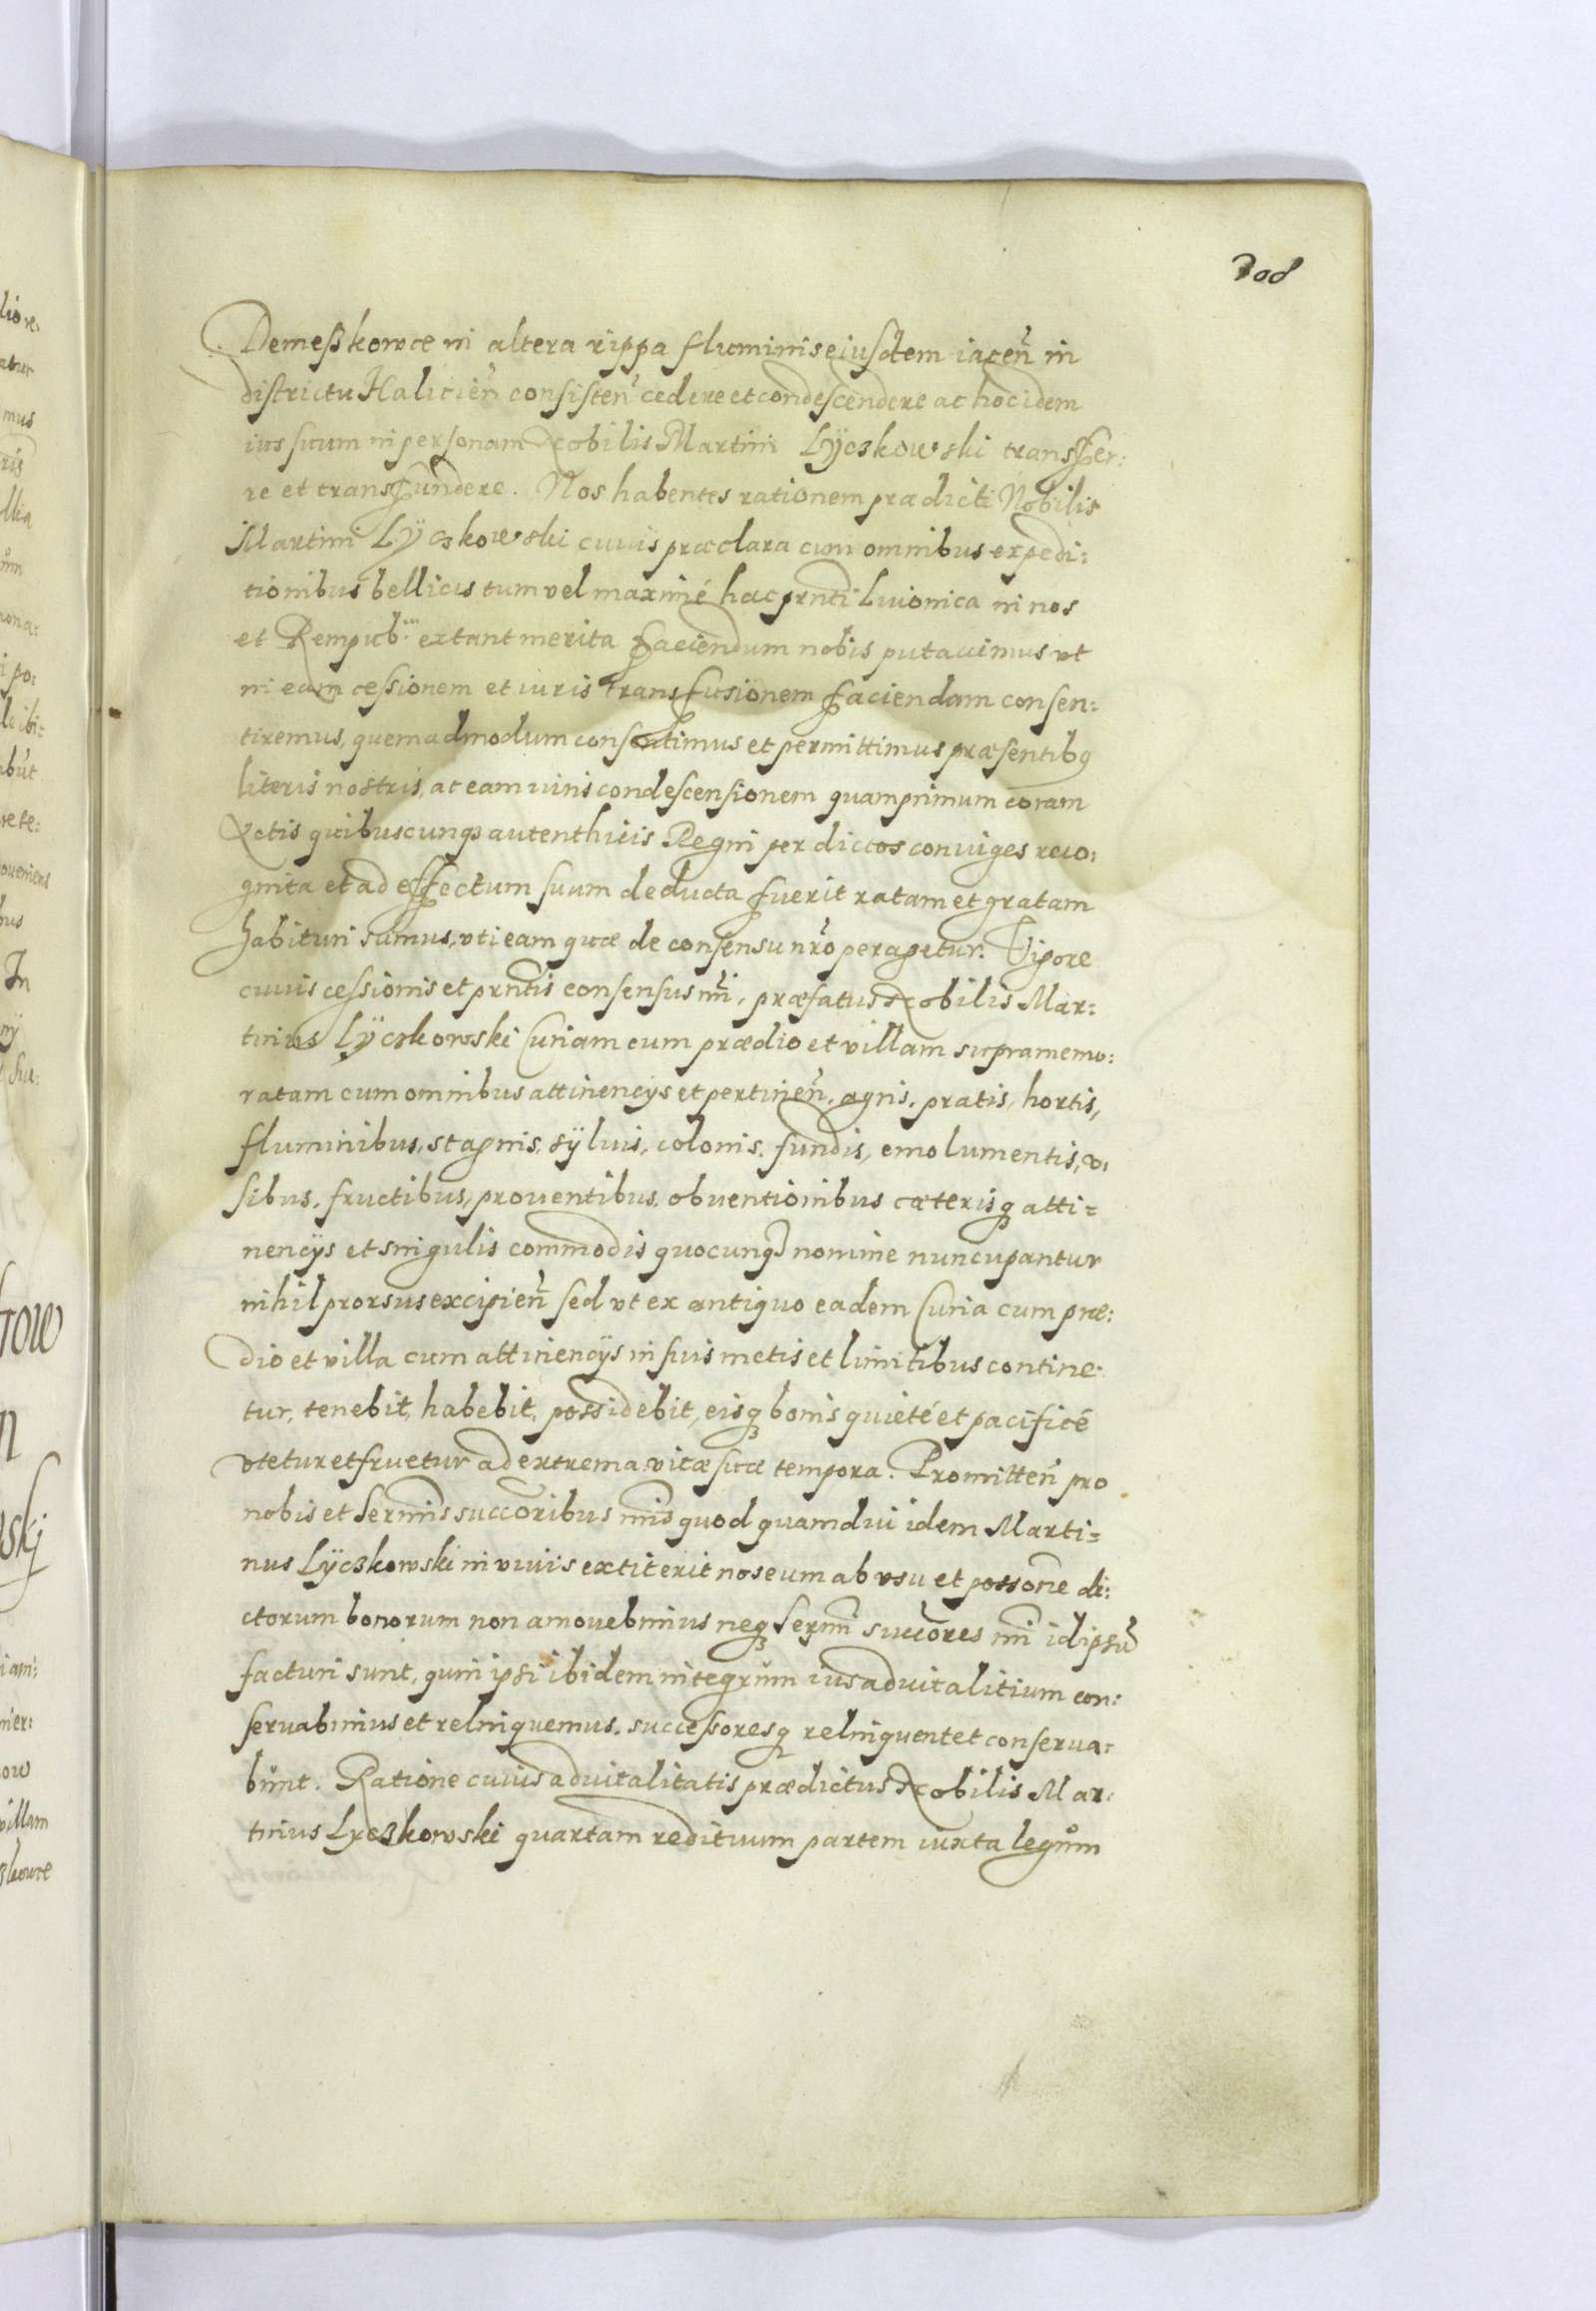 308
Demeßkowce in altera rippa fluminis eiusdem iaceñ in
districtu Halicieñ consisteñ cedere et condescendere ac hoc idem
ius suum in personam Nobilis Martini Lÿczkowski transfer:
re et transfundere. Nos habentes rationem praedicti Nobilis
Martini Lÿczkowski cuius præclara cum omnibus expedi:
tionibus bellicis tum vel maximé hac prnti Liuonica in nos
et Rempub: extant merita faciendum nobis putauimus vt
in eam cessionem et iuris transfusionem faciendam consen:
tiremus, quemadmodum consentimus et permittimus præsentibꝫ
literis nostris, ac eam iuris condescensionem quamprimum coram
Actis quibuscunqꝫ autenthicis Regni per dictos coniuges reco:
gnita et ad effectum suum deducta fuerit ratam et gratam
habituri sumus, vti eam quæ de consensu nr̃o peragetur. Vigore
cuius cessionis et prñtis consensus nr̃i, præfatus Nobilis Mar:
tinus Lÿczkowski Curiam cum prædio et villam supramemo:
ratam cum omnibus attinencÿs et pertineñ, agris, pratis, hortis,
fluminibus, stagnis, sÿluis, colonis, fundis, emolumentis, v:
sibus, fructibus, prouentibus, obuentionibus cæterisqꝫ atti=
nencÿs et singulis commodis quocunqꝫ nomine nuncupantur
nihil prorsus excipieñ sed vt ex antiquo eadem Curia cum præ:
dio et villa cum attinencÿs in suis metis et limitibus contine:
tur, tenebit, habebit, possidebit, eisqꝫ bonis quieté et pacificé
vtetur et fruetur ad extrema vitæ suæ tempora. Promitteñ pro
nobis et Sermis succoribus nris quod quamdiu idem Marti=
nus Lÿczkowski in viuis extiterit nos eum ab vsu et possone di:
ctorum bonorum non amouebimus neqꝫ Sermi succores nri idipsũ
facturi sunt, quin ipsi ibidem integrum ius aduitalitium con:
seruabimus et relinquemus, successoresqꝫ relinquent et conserua:
bunt. Ratione cuius aduitalitatis prædictus Nobilis Mar:
tinus Lyczkowski quartam redituum partem iuxta legum